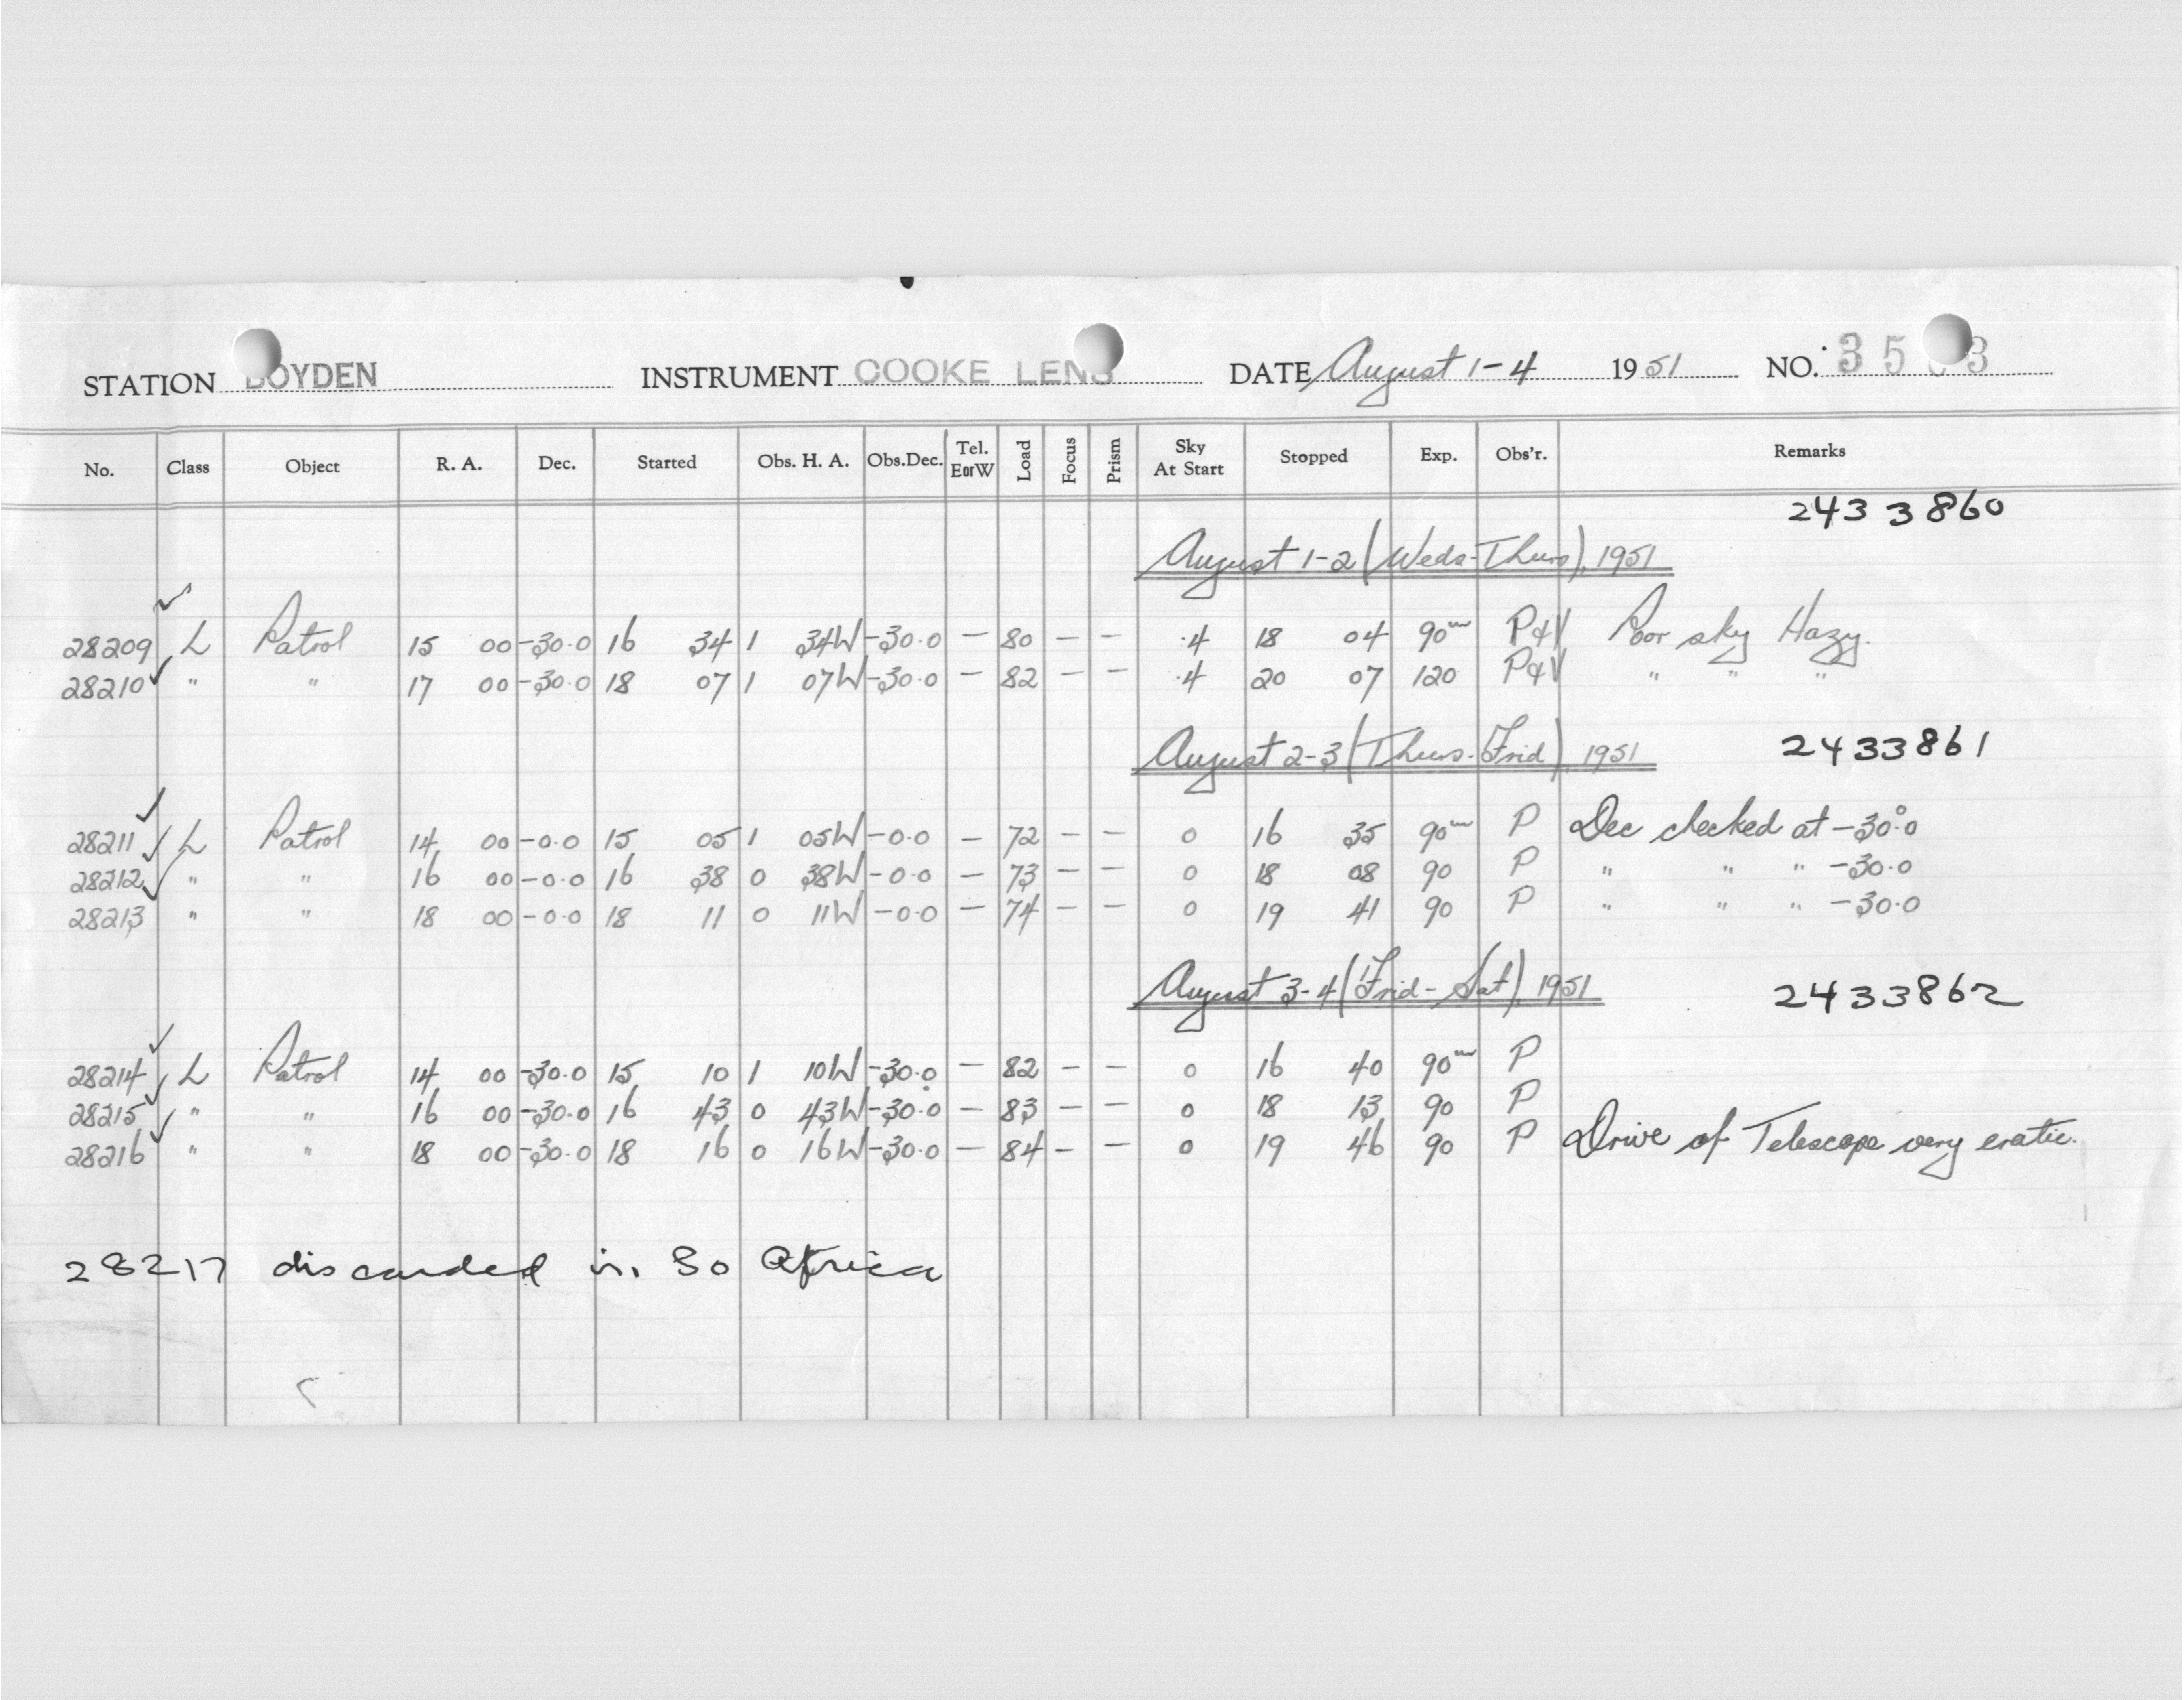 STATION BOYDEN INSTRUMENT COOKE LENS DATE August 1-4 1951 NO. 35 3
No. Class Object R. A. Dec. Started Obs. H. A. Obs.Dec. Tel. EorW Load Focus Prism Sky At Start Stopped Exp. Obs'r. Remarks
24 3 3 860
August 1-2 (Weds-Thurs), 1951
28209 L Patrol 15 00 -30.0 16 34 1 34W -30.0 — 80 — — .4 18 04 90m P&V Poor sky Hazy.
28210 " " 17 00 -30.0 18 07 1 07W -30.0 — 82 — — .4 20 07 120 P&V " " "
August 2-3 (Thurs-Frid), 1951 2433861
28211 L Patrol 14 00 -0.0 15 05 1 05W -0.0 — 72 — — 0 16 35 90m P Dec checked at -30°.0
28212 " " 16 00 -0.0 16 38 0 38W -0.0 — 73 — — 0 18 08 90 P " " " -30.0
28213 " " 18 00 -0.0 18 11 0 11W -0.0 — 74 — — 0 19 41 90 P " " " -30.0
August 3-4 (Frid-Sat), 1951 2433862
28214 L Patrol 14 00 -30.0 15 10 1 10W -30.0 — 82 — — 0 16 40 90m P
28215 " " 16 00 -30.0 16 43 0 43W -30.0 — 83 — — 0 18 13 90 P
28216 " " 18 00 -30.0 18 16 0 16W -30.0 — 84 — — 0 19 46 90 P Drive of Telescope very eratic.
28217 discarded in So Africa